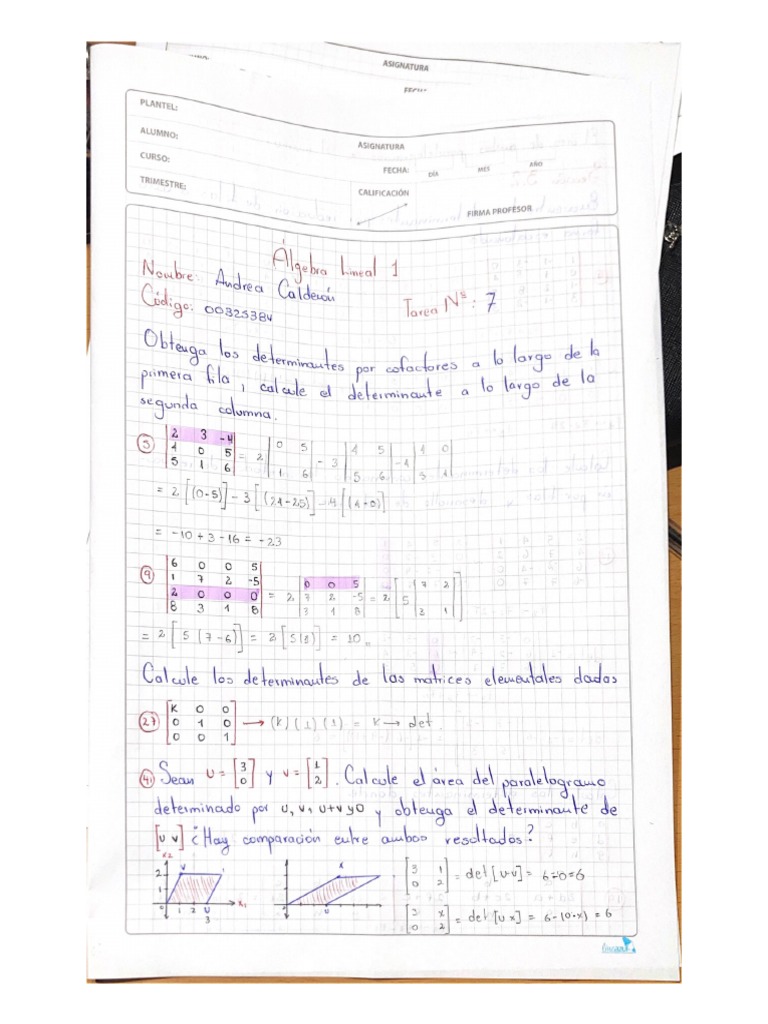 ASIGNATURA
PLANTEL:
ALUMNO:
ASIGNATURA
CURSO:
FECHA: DÍA MES AÑO
TRIMESTRE:
CALIFICACIÓN
FIRMA PROFESOR
Álgebra Lineal 1
Nombre: Andrea Calderón
Código: 00325384
Tarea Nº: 7
Obtenga los determinantes por cofactores a lo largo de la
primera fila, calcule el determinante a lo largo de la
segunda columna.
③ |2 3 -4| = 2 |0 5| - 3 |4 5| -4 |4 0|
|4 0 5| |1 6| |5 6| |5 1|
|5 1 6|
= 2[(0-5)] - 3[(24-25)] - 4[(4-0)]
= -10 + 3 - 16 = -23
⑨ |6 0 0 5|
|1 7 2 -5| |0 0 5|
|2 0 0 0| = 2 |7 2 -5| = 2 [5 |7 2|
|8 3 1 8| |3 1 8| |3 1|]
= 2[5(7-6)] = 2[5(1)] = 10
Calcule los determinantes de las matrices elementales dadas
㉗ [K 0 0]
[0 1 0] → (K)(1)(1) = K → det
[0 0 1]
④1 Sean u = [3 0] y v = [1 2]. Calcule el área del paralelogramo
determinado por u, v, u+v y 0 y obtenga el determinante de
[u v] ¿Hay comparación entre ambos resultados?
x2
2
1
0 1 2 U x1
3
V
X
U
[3 1]
[0 2] = det [u v] = 6-0=6
[3 x]
[0 2] = det [u x] = 6-(0·x) = 6